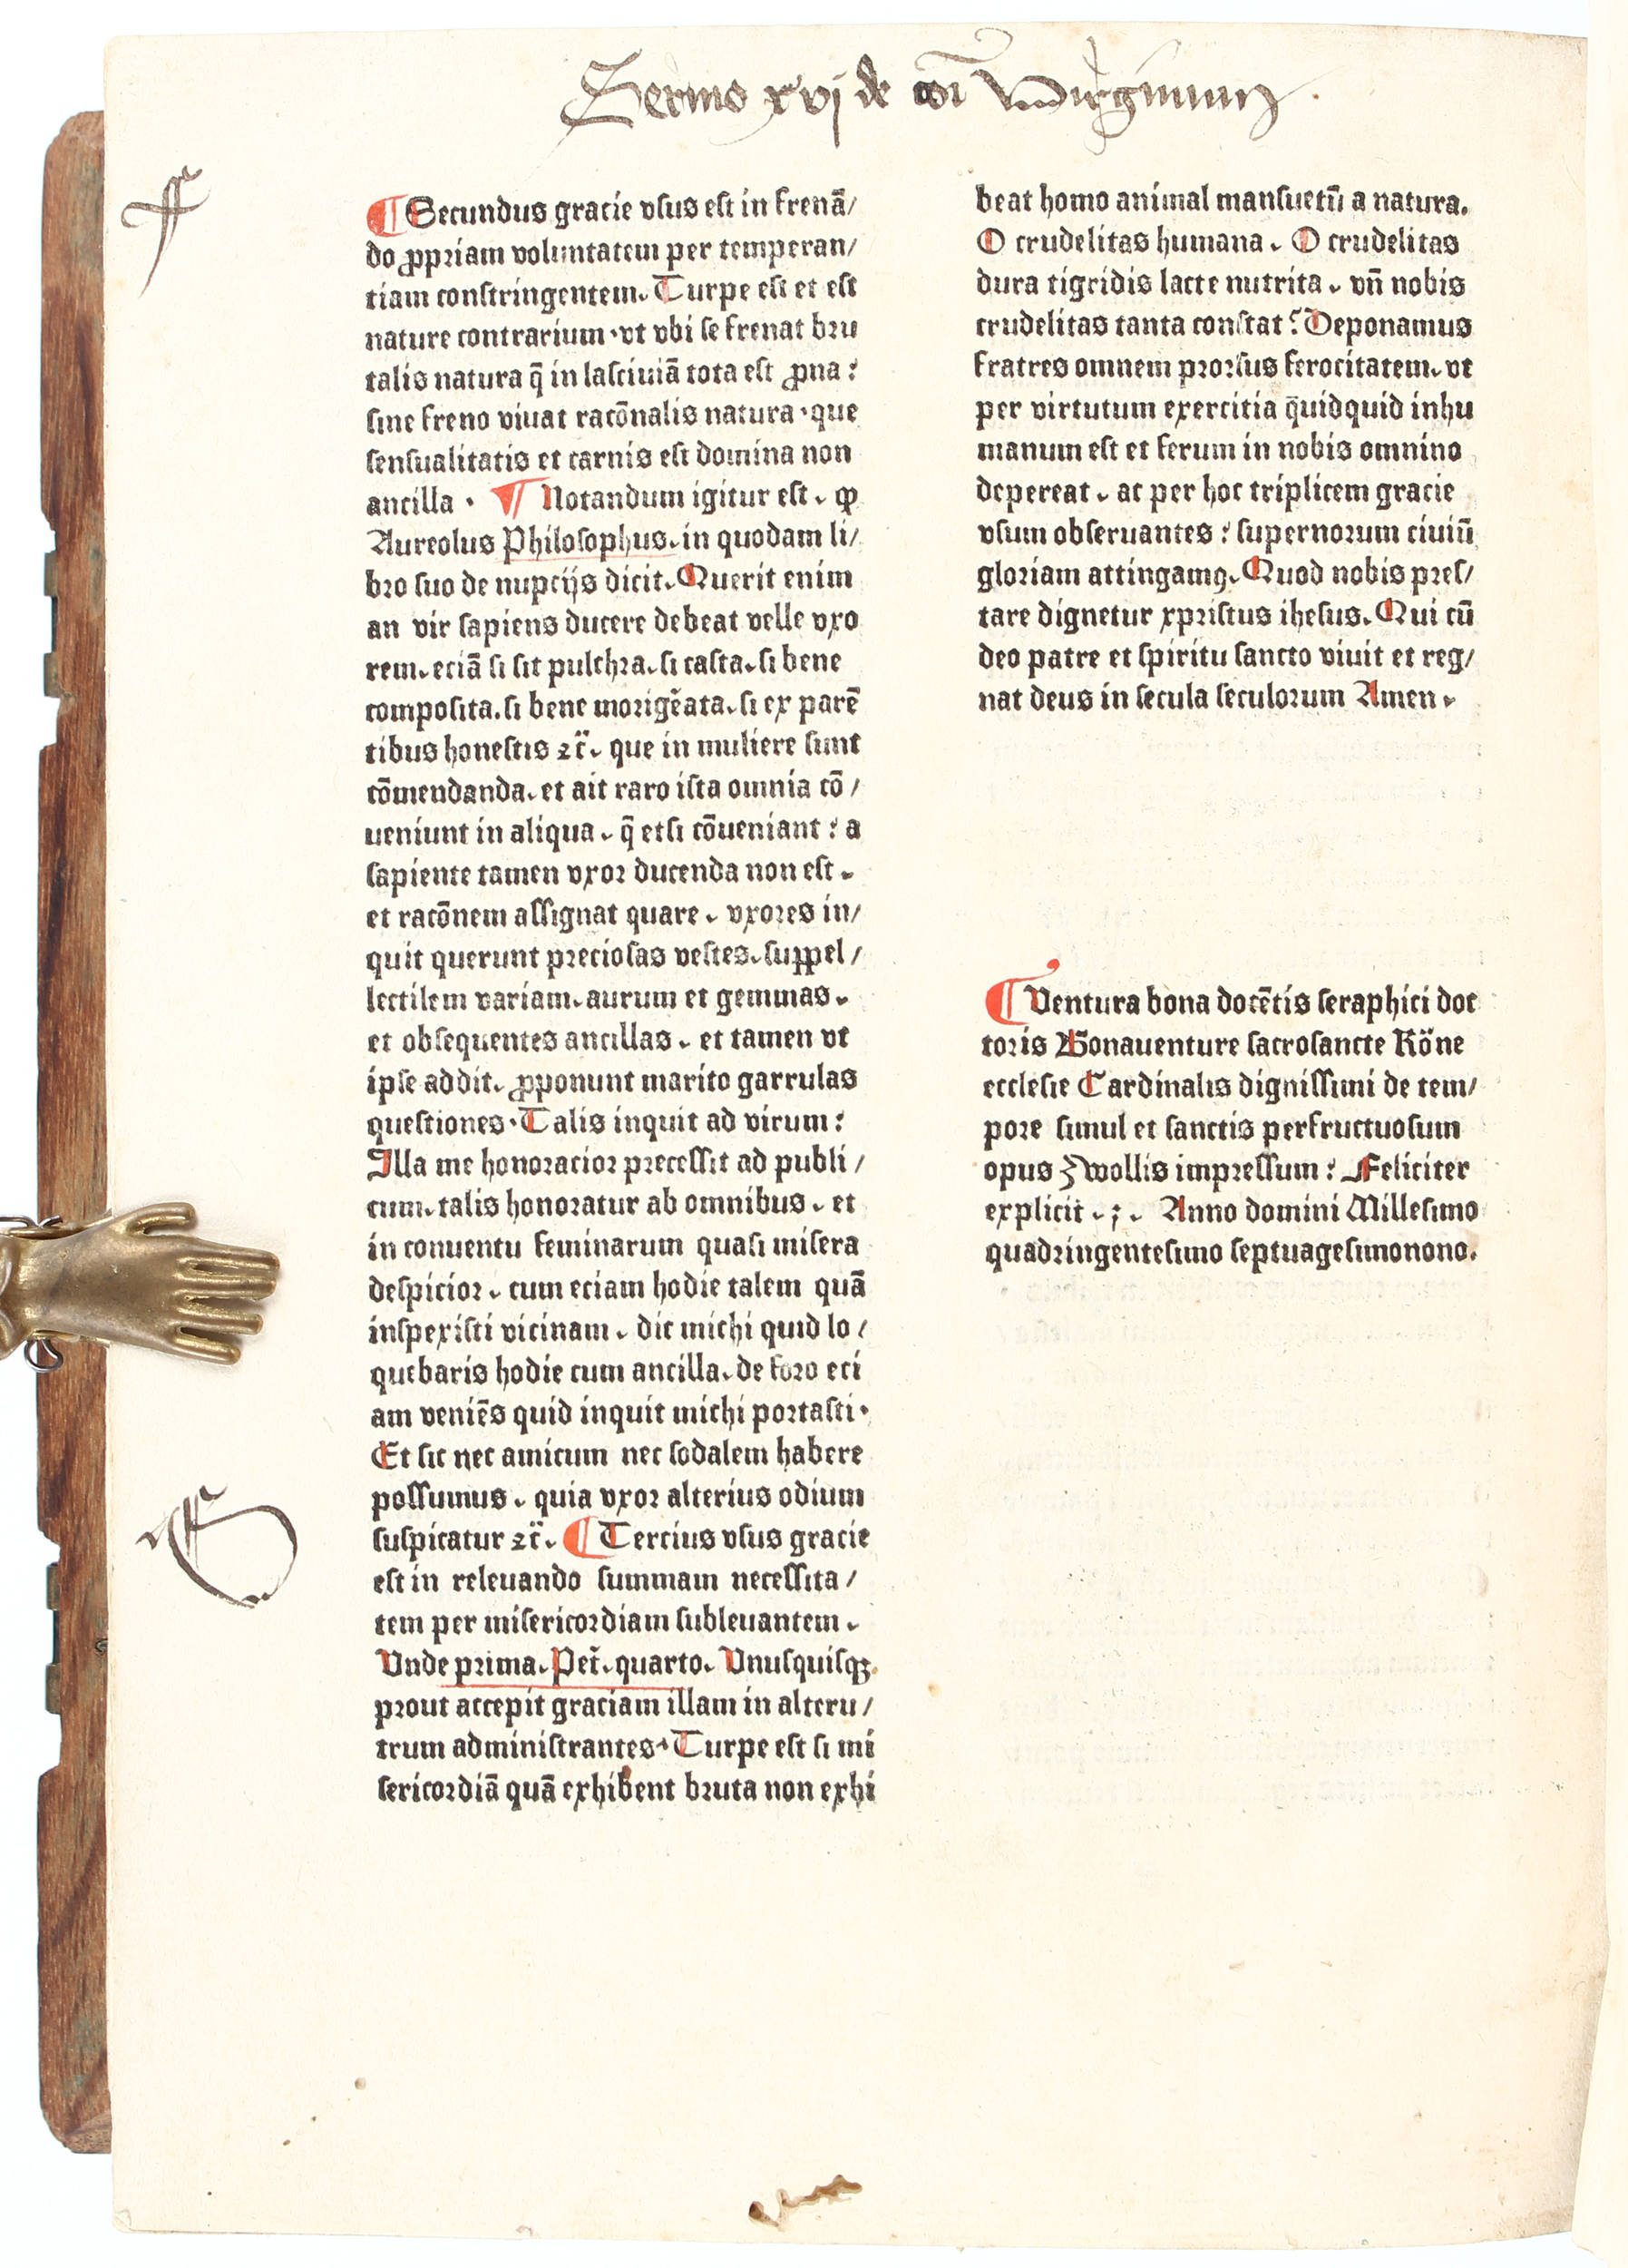 Sermo xvj de cōi virginum
F
¶ Secundus gracie vsus est in frenā/
do ꝓpriam voluntatem per temperan/
tiam constringentem. Turpe est et est
nature contrarium · vt vbi se frenat bru
talis natura q̄ in lasciuiā tota est ꝓna :
sine freno viuat racōnalis natura · que
sensualitatis et carnis est domina non
ancilla · ¶ Notandum igitur est . ꝙ
Aureolus Philosophus. in quodam li/
bro suo de nupcijs dicit. Querit enim
an vir sapiens ducere debeat velle vxo
rem. eciā si sit pulchra. si casta. si bene
composita. si bene morigēata. si ex parē
tibus honestis ⁊c̄. que in muliere sunt
cōmendanda. et ait raro ista omnia cō/
ueniunt in aliqua . q̄ etsi cōueniant : a
sapiente tamen vxor ducenda non est .
et racōnem assignat quare . vxores in/
quit querunt preciosas vestes. suppel/
lectilem variam. aurum et gemmas .
et obsequentes ancillas . et tamen vt
ipse addit. ꝓponunt marito garrulas
questiones · Talis inquit ad virum :
Illa me honoracior precessit ad publi/
cum. talis honoratur ab omnibus . et
in conuentu feminarum quasi misera
despicior . cum eciam hodie talem quā
inspexisti vicinam . dic michi quid lo/
quebaris hodie cum ancilla. de foro eci
am veniēs quid inquit michi portasti ·
Et sic nec amicum nec sodalem habere
possumus . quia vxor alterius odium
suspicatur ⁊c̄. ¶ Tercius vsus gracie
est in releuando summam necessita/
tem per misericordiam subleuantem .
Vnde prima. Pet̄. quarto. Vnusquisqꝫ
prout accepit graciam illam in alteru/
trum administrantes · Turpe est si mi
sericordiā quā exhibent bruta non exhi
G
beat homo animal mansuetū a natura.
O crudelitas humana . O crudelitas
dura tigridis lacte nutrita . vn̄ nobis
crudelitas tanta constat ? Deponamus
fratres omnem prorsus ferocitatem. vt
per virtutum exercitia q̄uidquid inhu
manum est et ferum in nobis omnino
depereat . ac per hoc triplicem gracie
vsum obseruantes : supernorum ciuiū
gloriam attingamꝰ. Quod nobis pres/
tare dignetur xpristus ihesus. Qui cū
deo patre et spiritu sancto viuit et reg/
nat deus in secula seculorum Amen .
¶ Ventura bona docētis seraphici doc
toris Bonauenture sacrosancte Rōne
ecclesie Cardinalis dignissimi de tem/
pore simul et sanctis perfructuosum
opus Zwollis impressum : Feliciter
explicit . ; . Anno domini Millesimo
quadringentesimo septuagesimonono.